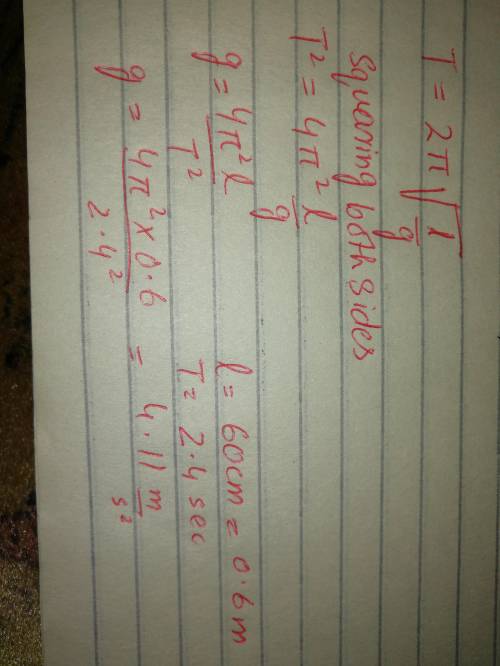 T = 2π√l/g
Squaring both sides
T² = 4π² l/g
g = 4π²l/T²
l = 60cm = 0.6m
T = 2.4 sec
g = 4π² × 0.6/2.4² = 4.11 m/s²